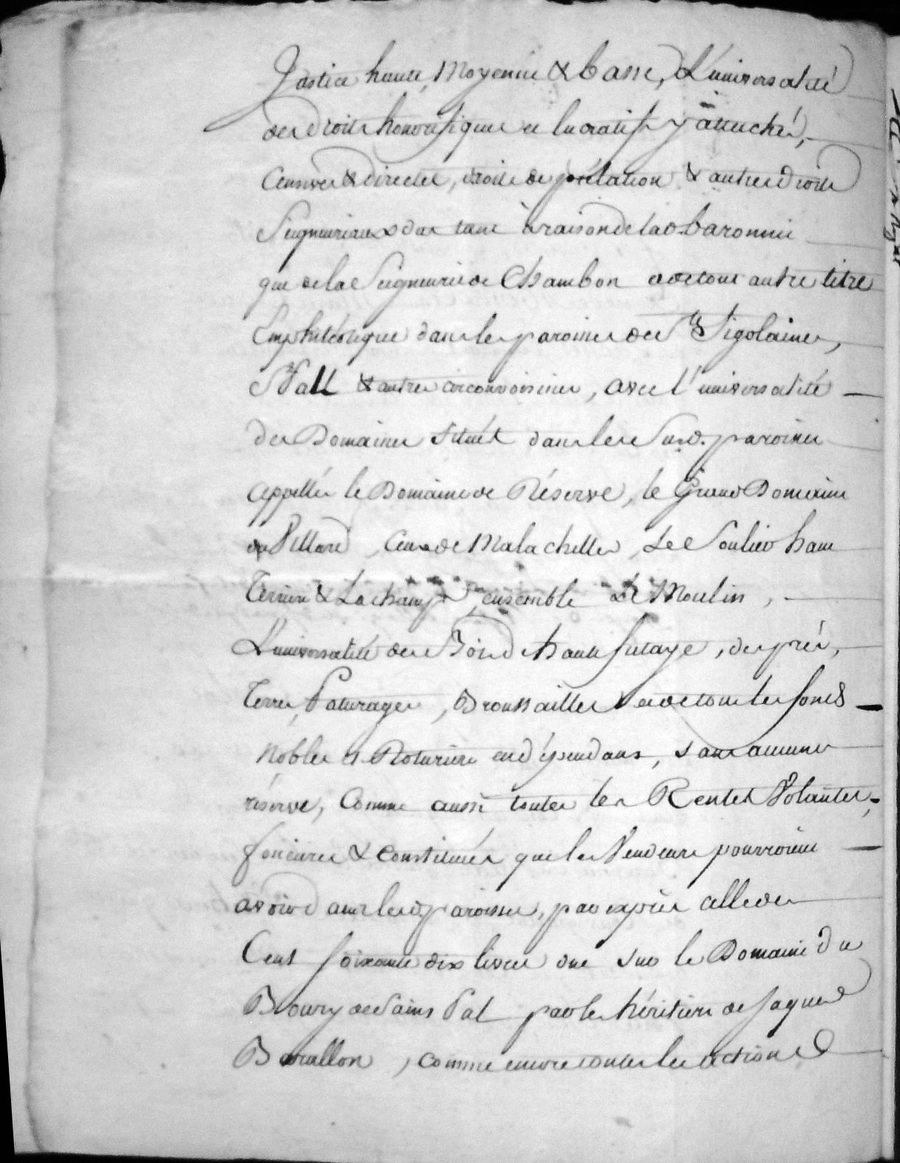 Justice haute, Moyenne & basse, L'universalité
des Droits honorifiques et lucratifs y attachés,
Censives & directes, droits de prélation & autres droits
Seigneuriaux dus tant à raison de lad. baronnie
que de la Seigneurie de Chambon et de tout autre titre
Emphitéotique dans les paroisses de Ste Sigolaine,
St Pall & autres circonvoisines, avec l'universalité
des Domaines situét dans les Susd. paroisses
appellés le Domaine de Réserve, le Grand Domaine
du Villard, ceux de Malachelle, Le Soulier haut
Terrien & Lachamp ensemble Le Moulin,
L'universalité des Bois d'haute futaye, des prés,
Terres, Paturages, Broussailles et de tous les fonds
Nobles et Roturiers en dépendans, sans aucune
réserve, Comme aussi toutes les Rentes Volantes,
foncieres & constituées que les Vendeurs pourroient
avoir dans lesd. paroisses, par exprès celle de
Cent soixante dix livres due sur le Domaine du
Boury de Saint Pal par les héritiers de Jaques
Barallon, comme encore toutes les actions